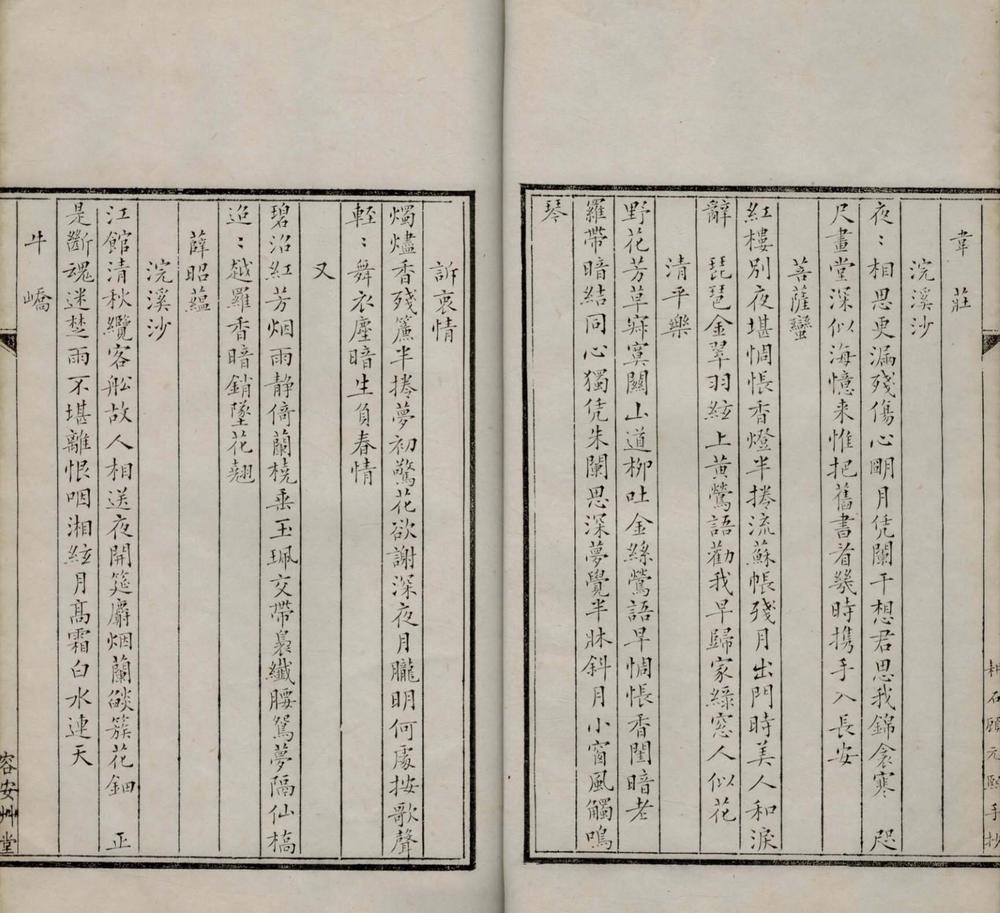 韋莊
浣溪沙
夜：相思更漏殘傷心明月凭闌干想君思我錦衾寒　咫
尺畫堂深似海憶来惟把舊書看幾時携手入長安
菩薩蠻
紅樓別夜堪惆悵香燈半捲流蘇帳殘月出門時美人和淚
辭　琵琶金翠羽絃上黃鶯語勸我早歸家綠窓人似花
清平樂
野花芳草寂寞關山道柳吐金絲鶯語早惆悵香閨暗老
羅帶暗結同心獨凭朱闌思深夢覺半牀斜月小窗風觸鳴
琴
訴衷情
燭燼香殘簾半捲夢初驚花欲謝深夜月朧明何處按歌聲
輕：舞衣塵暗生負春情
又
碧沼紅芳烟雨靜倚蘭橈垂玉珮交帶裊纖腰鴛夢隔仙橋
迢：越羅香暗銷墜花翹
薛昭蘊
浣溪沙
江館清秋纜客舩故人相送夜開筵麝烟蘭燄簇花鈿　正
是斷魂迷楚雨不堪離恨咽湘絃月髙霜白水連天
牛嶠
耕石顧元熙手抄
容安艸堂